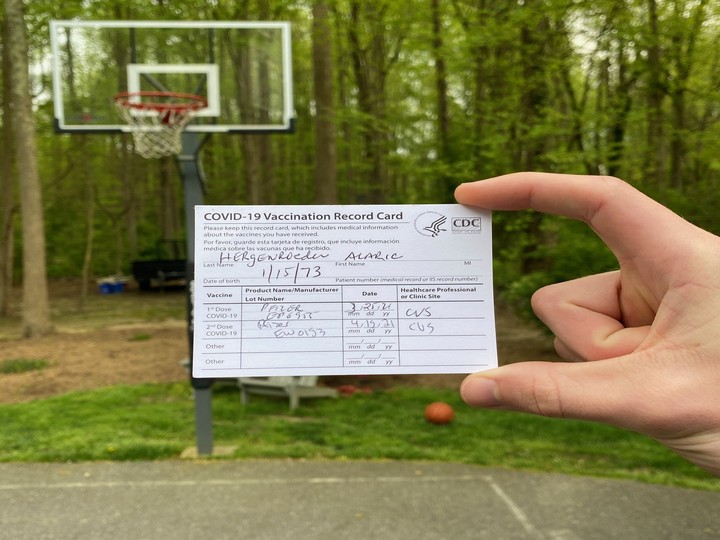 COVID-19 Vaccination Record Card
CDC
Please keep this record card, which includes medical information
about the vaccines you have received.
Por favor, guarde esta tarjeta de registro, que incluye información
médica sobre las vacunas que ha recibido.
Hergenroeder Alaric
Last Name First Name MI
1/15/73
Date of birth Patient number (medical record or IIS record number)
Vaccine Product Name/Manufacturer Date Healthcare Professional
Lot Number or Clinic Site
1st Dose Pfizer CVS
COVID-19 mm dd yy
2nd Dose 4/15/21 CVS
COVID-19 EW0153 mm dd yy
Other mm dd yy
Other mm dd yy